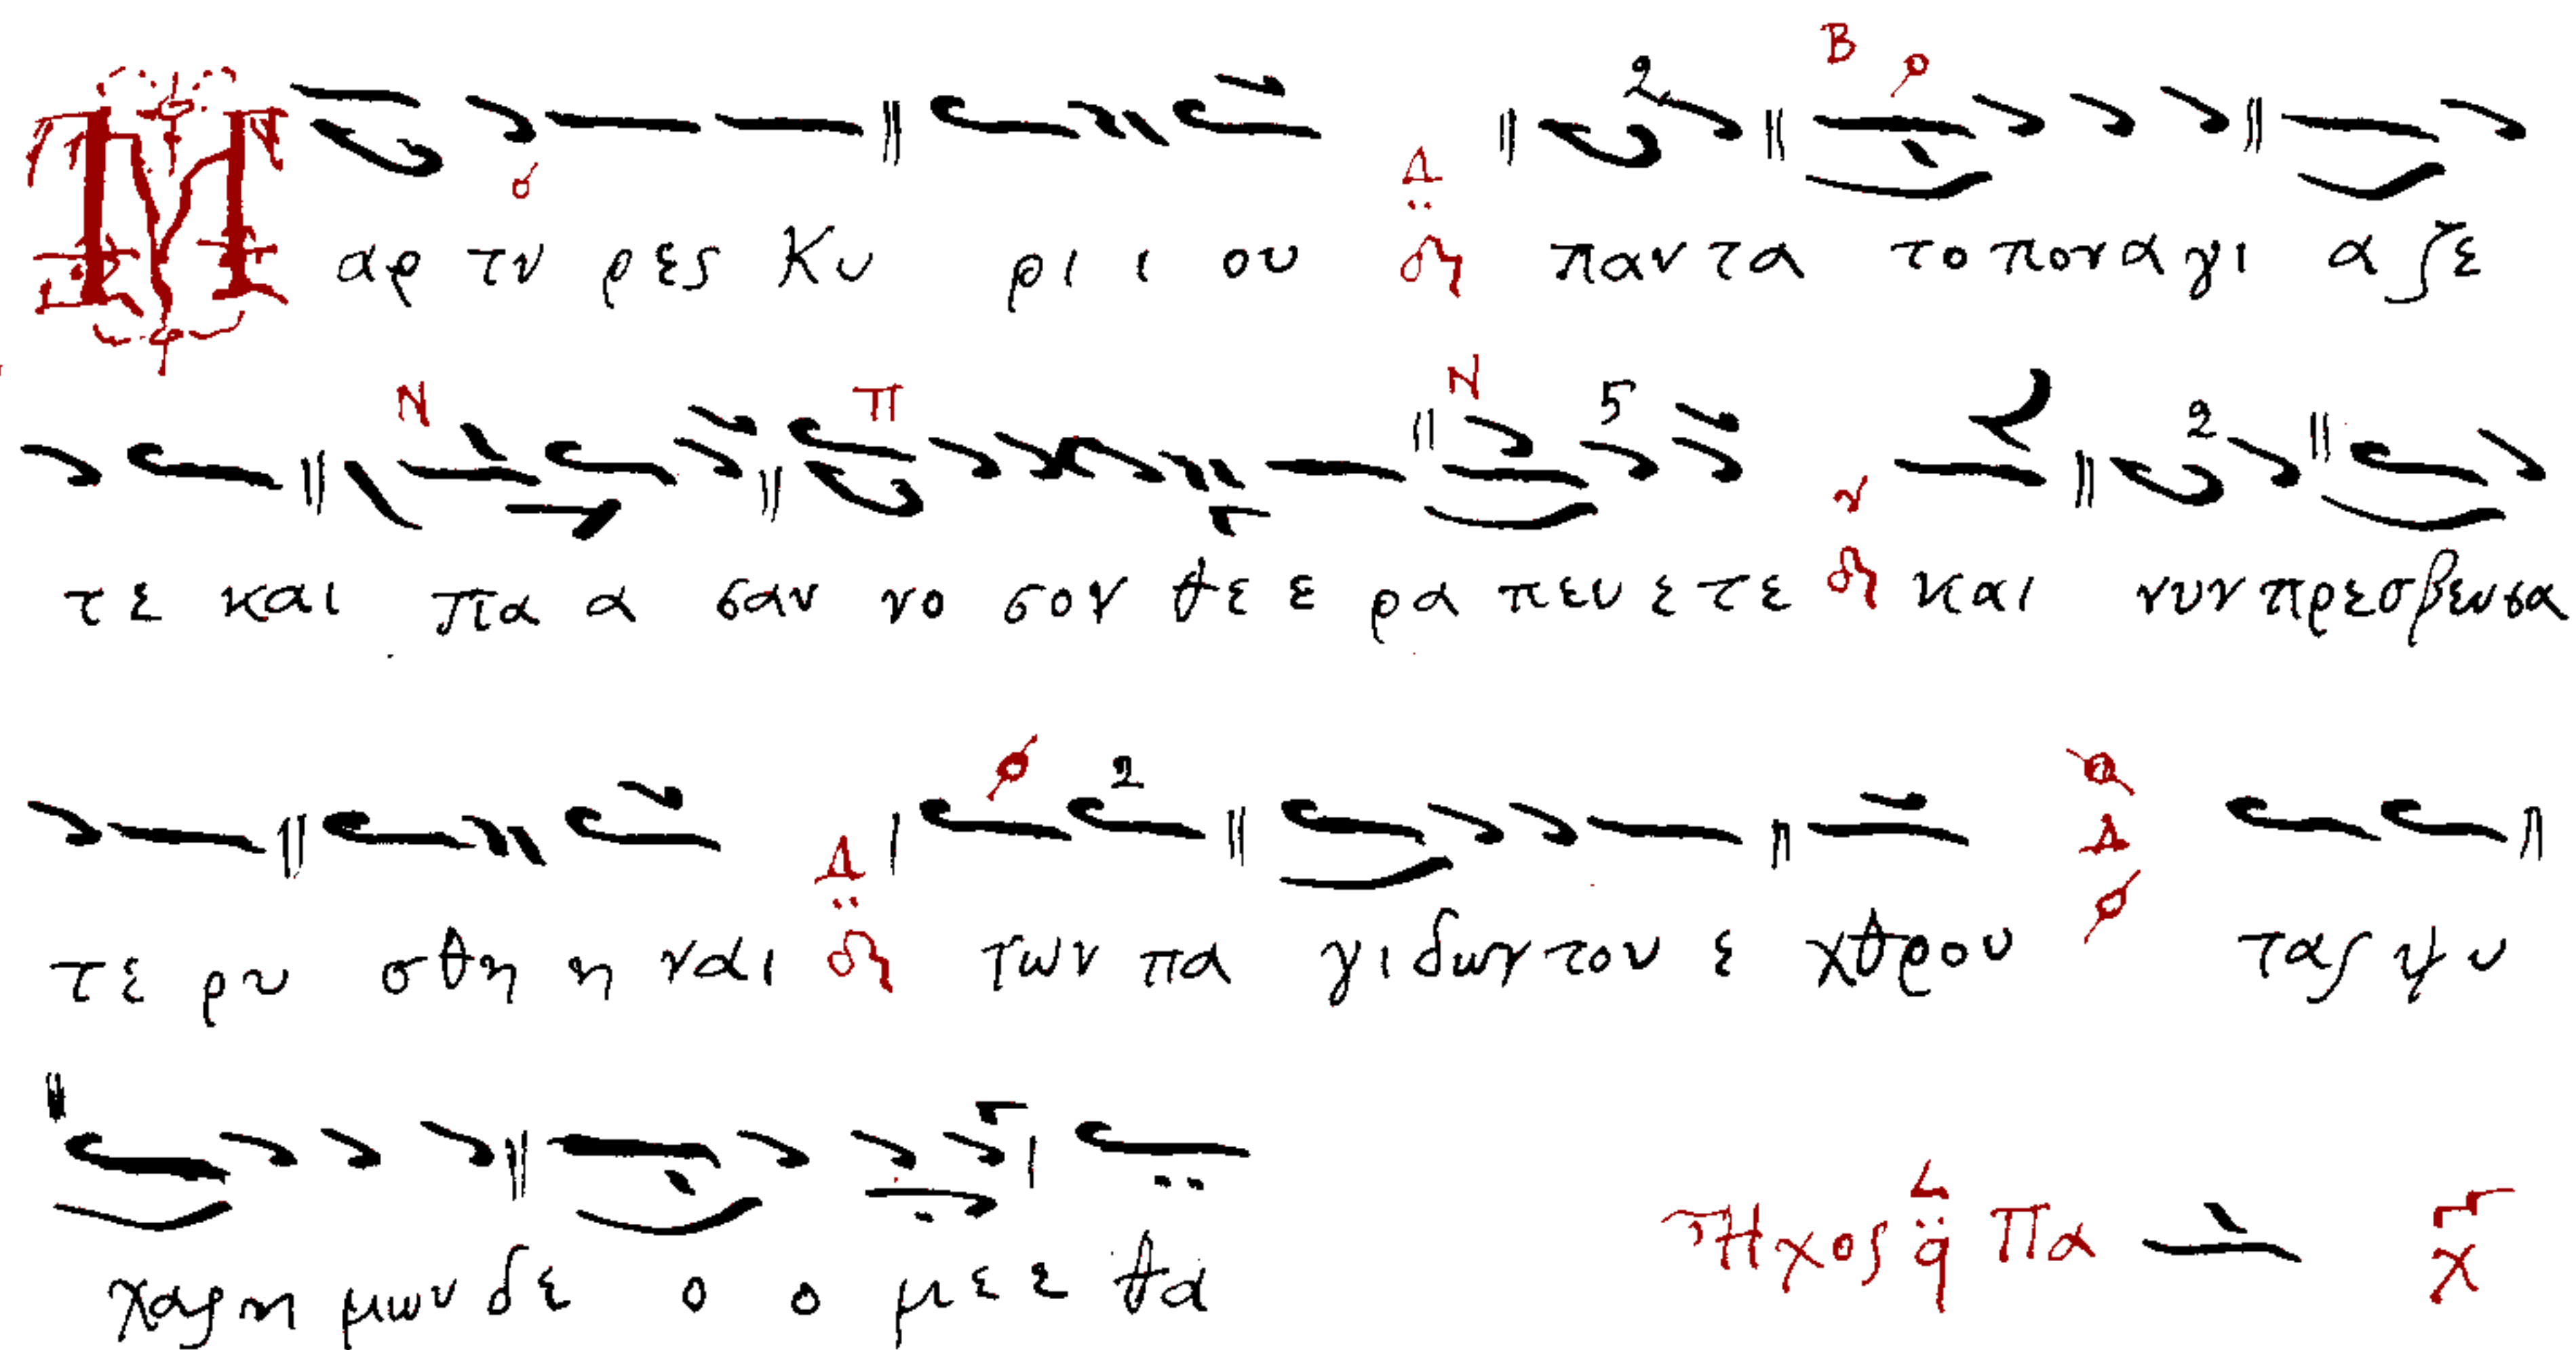 Μ αρ τυ ρες Κυ ρι ι ου Δ παν τα το πον α γι α ζε
τε και πα α σαν νο σον θε ε ρα πευ ε τε ν και νυν πρεσβευσα
τε ρυ σθη η ναι Δ των πα γι δων του ε χθρου Δ τας ψυ
χας η μων δε ο ο με ε θα Ἦχος q Πα χ